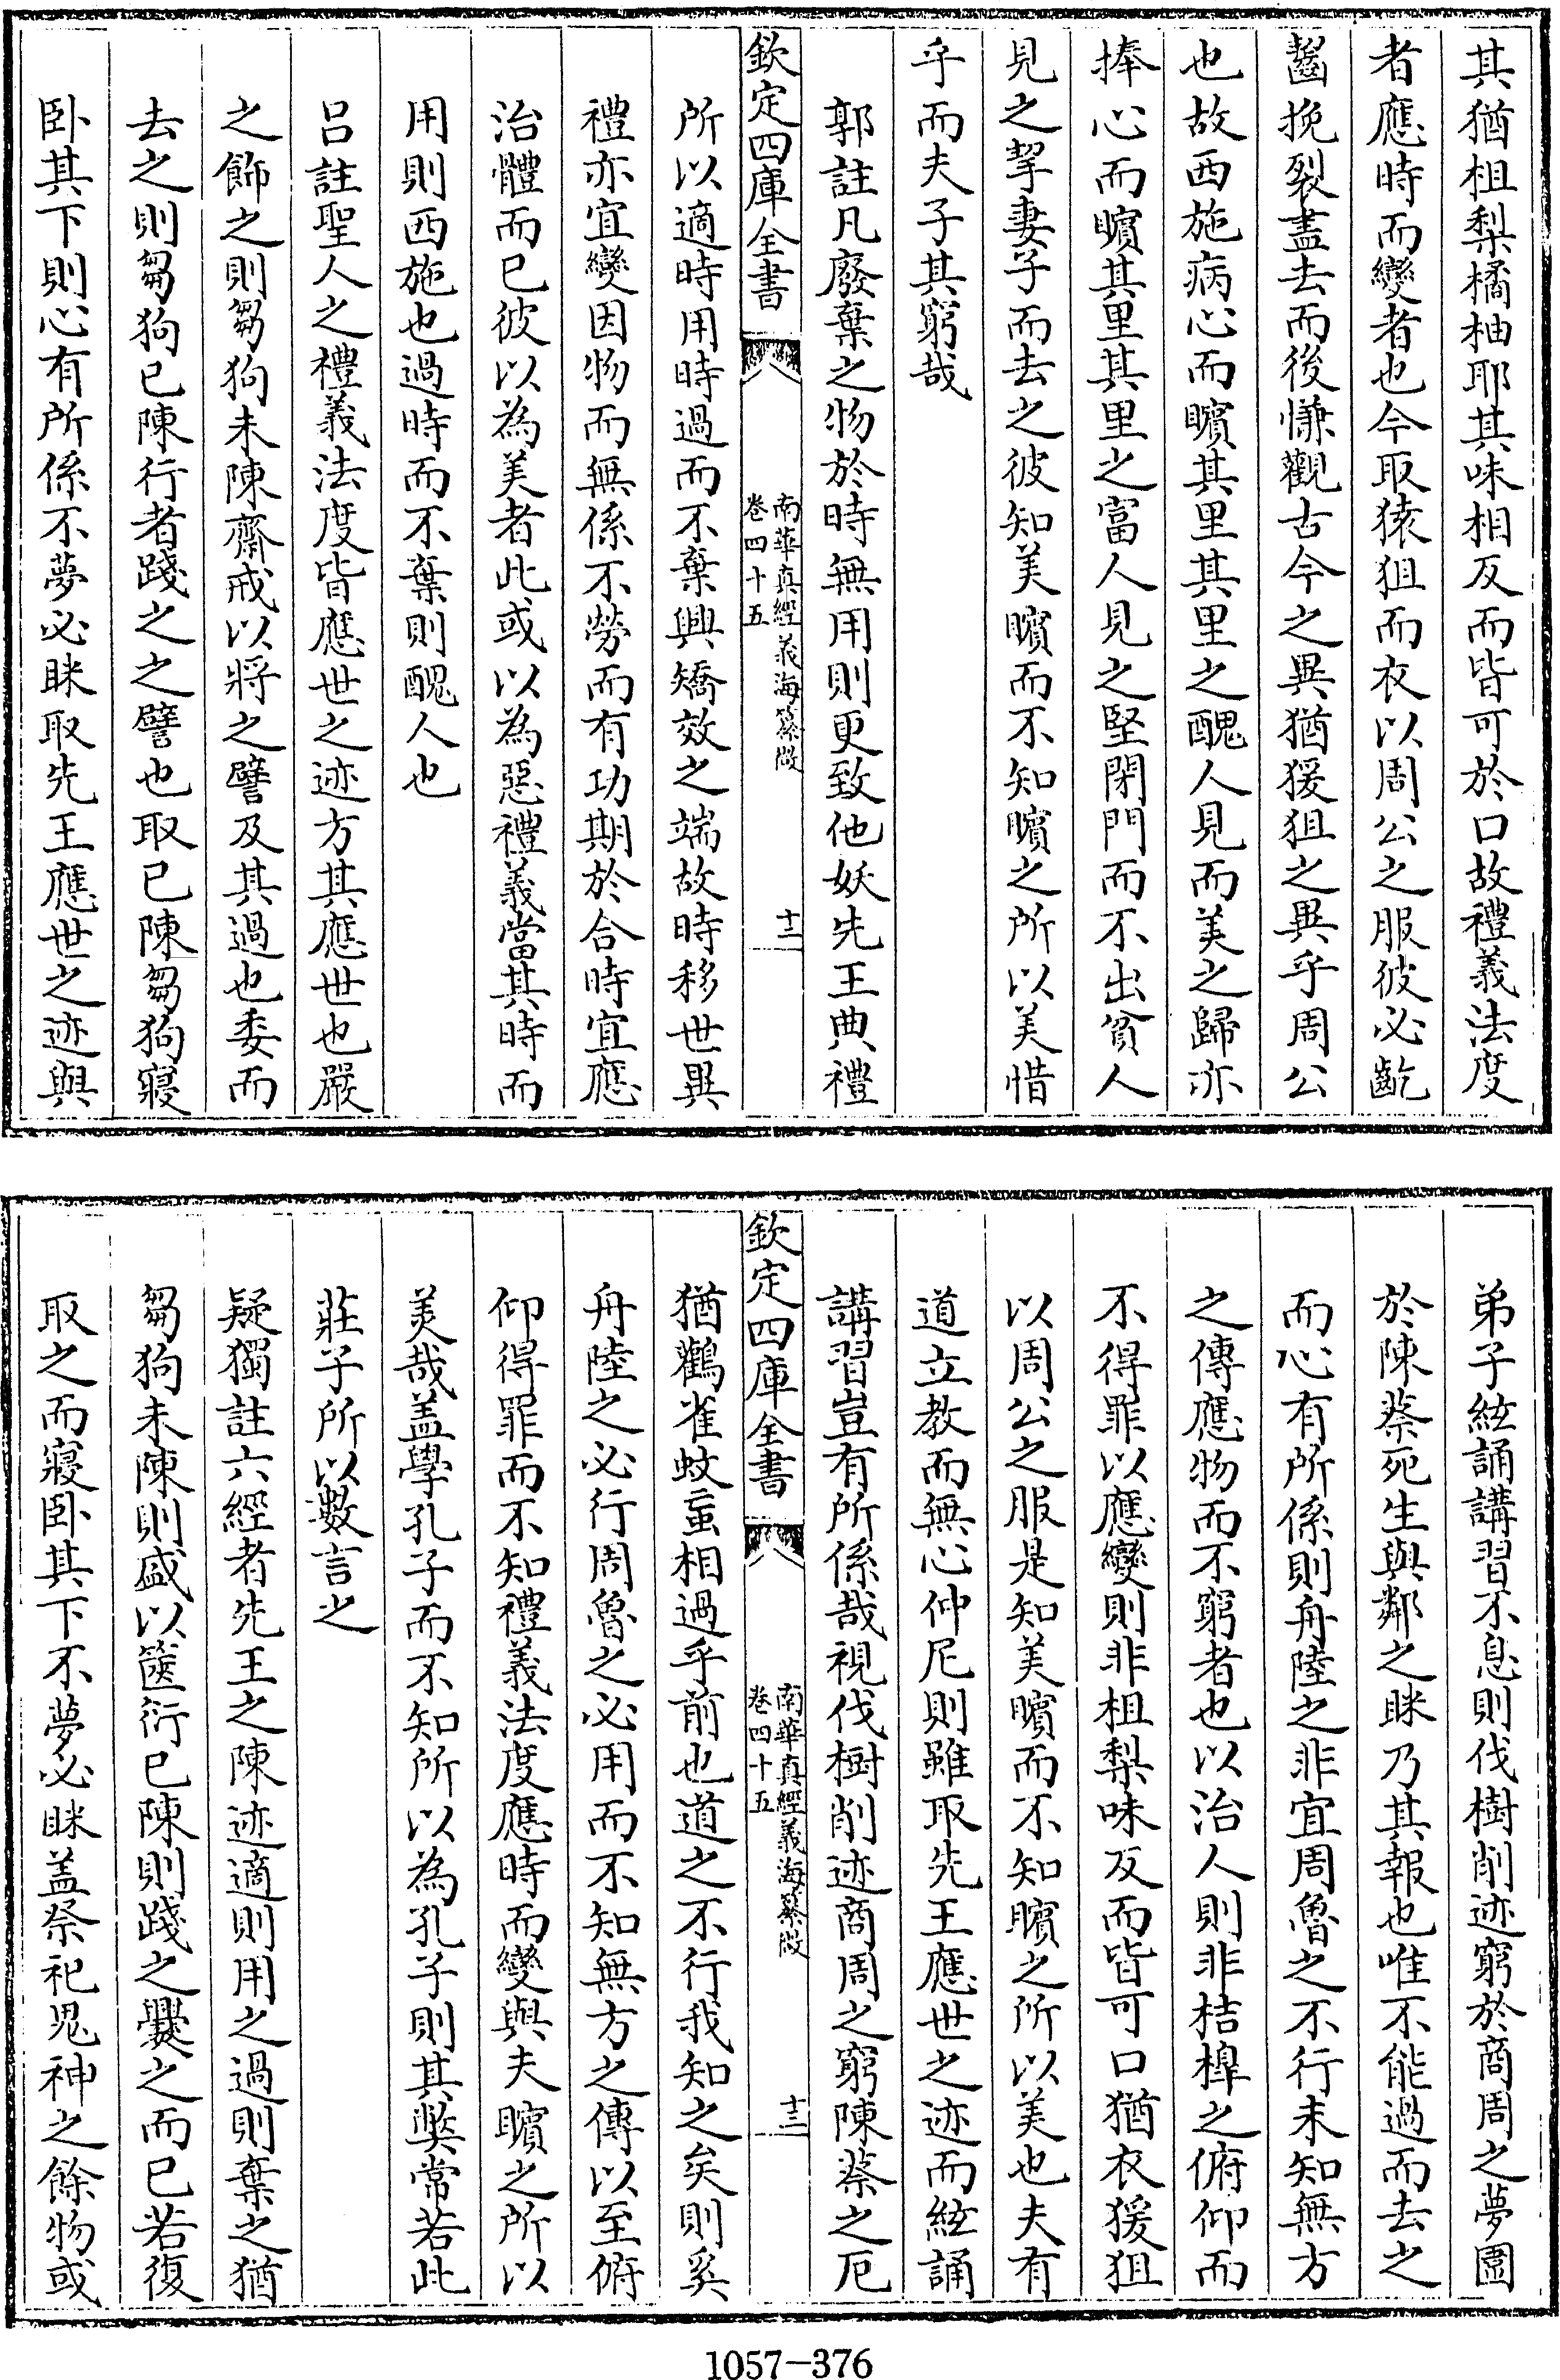 其猶柤梨橘柚耶其味相反而皆可於口故禮義法度
者應時而變者也今取猿狙而衣以周公之服彼必齕
齧挽裂盡去而後慊觀古今之異猶猨狙之異乎周公
也故西施病心而矉其里其里之醜人見而美之歸亦
捧心而矉其里其里之富人見之堅閉門而不出貧人
見之挈妻子而去之彼知美矉而不知矉之所以美惜
乎而夫子其窮哉
郭註凡廢棄之物於時無用則更致他妖先王典禮
欽定四庫全書
南華真經義海纂微
卷四十五
十二
所以適時用時過而不棄興矯效之端故時移世異
禮亦宜變因物而無係不勞而有功期於合時宜應
治體而已彼以為美者此或以為惡禮義當其時而
用則西施也過時而不棄則醜人也
呂註聖人之禮義法度皆應世之迹方其應世也嚴
之飾之則芻狗未陳齋戒以將之譬及其過也委而
去之則芻狗已陳行者踐之之譬也取已陳芻狗寢
卧其下則心有所係不夢必眯取先王應世之迹與
弟子絃誦講習不息則伐樹削迹窮於商周之夢圍
於陳蔡死生與鄰之眯乃其報也唯不能過而去之
而心有所係則舟陸之非宜周魯之不行未知無方
之傳應物而不窮者也以治人則非桔槹之俯仰而
不得罪以應變則非柤梨味反而皆可口猶衣猨狙
以周公之服是知美矉而不知矉之所以美也夫有
道立教而無心仲尼則雖取先王應世之迹而絃誦
講習豈有所係哉視伐樹削迹商周之窮陳蔡之厄
欽定四庫全書
南華真經義海纂微
卷四十五
十三
猶鸛雀蚊虻相過乎前也道之不行我知之矣則奚
舟陸之必行周魯之必用而不知無方之傳以至俯
仰得罪而不知禮義法度應時而變與夫矉之所以
美哉盖學孔子而不知所以為孔子則其獘常若此
莊子所以數言之
疑獨註六經者先王之陳迹適則用之過則棄之猶
芻狗未陳則盛以篋衍已陳則踐之爨之而已若復
取之而寢卧其下不夢必眯盖祭祀鬼神之餘物或
1057-376